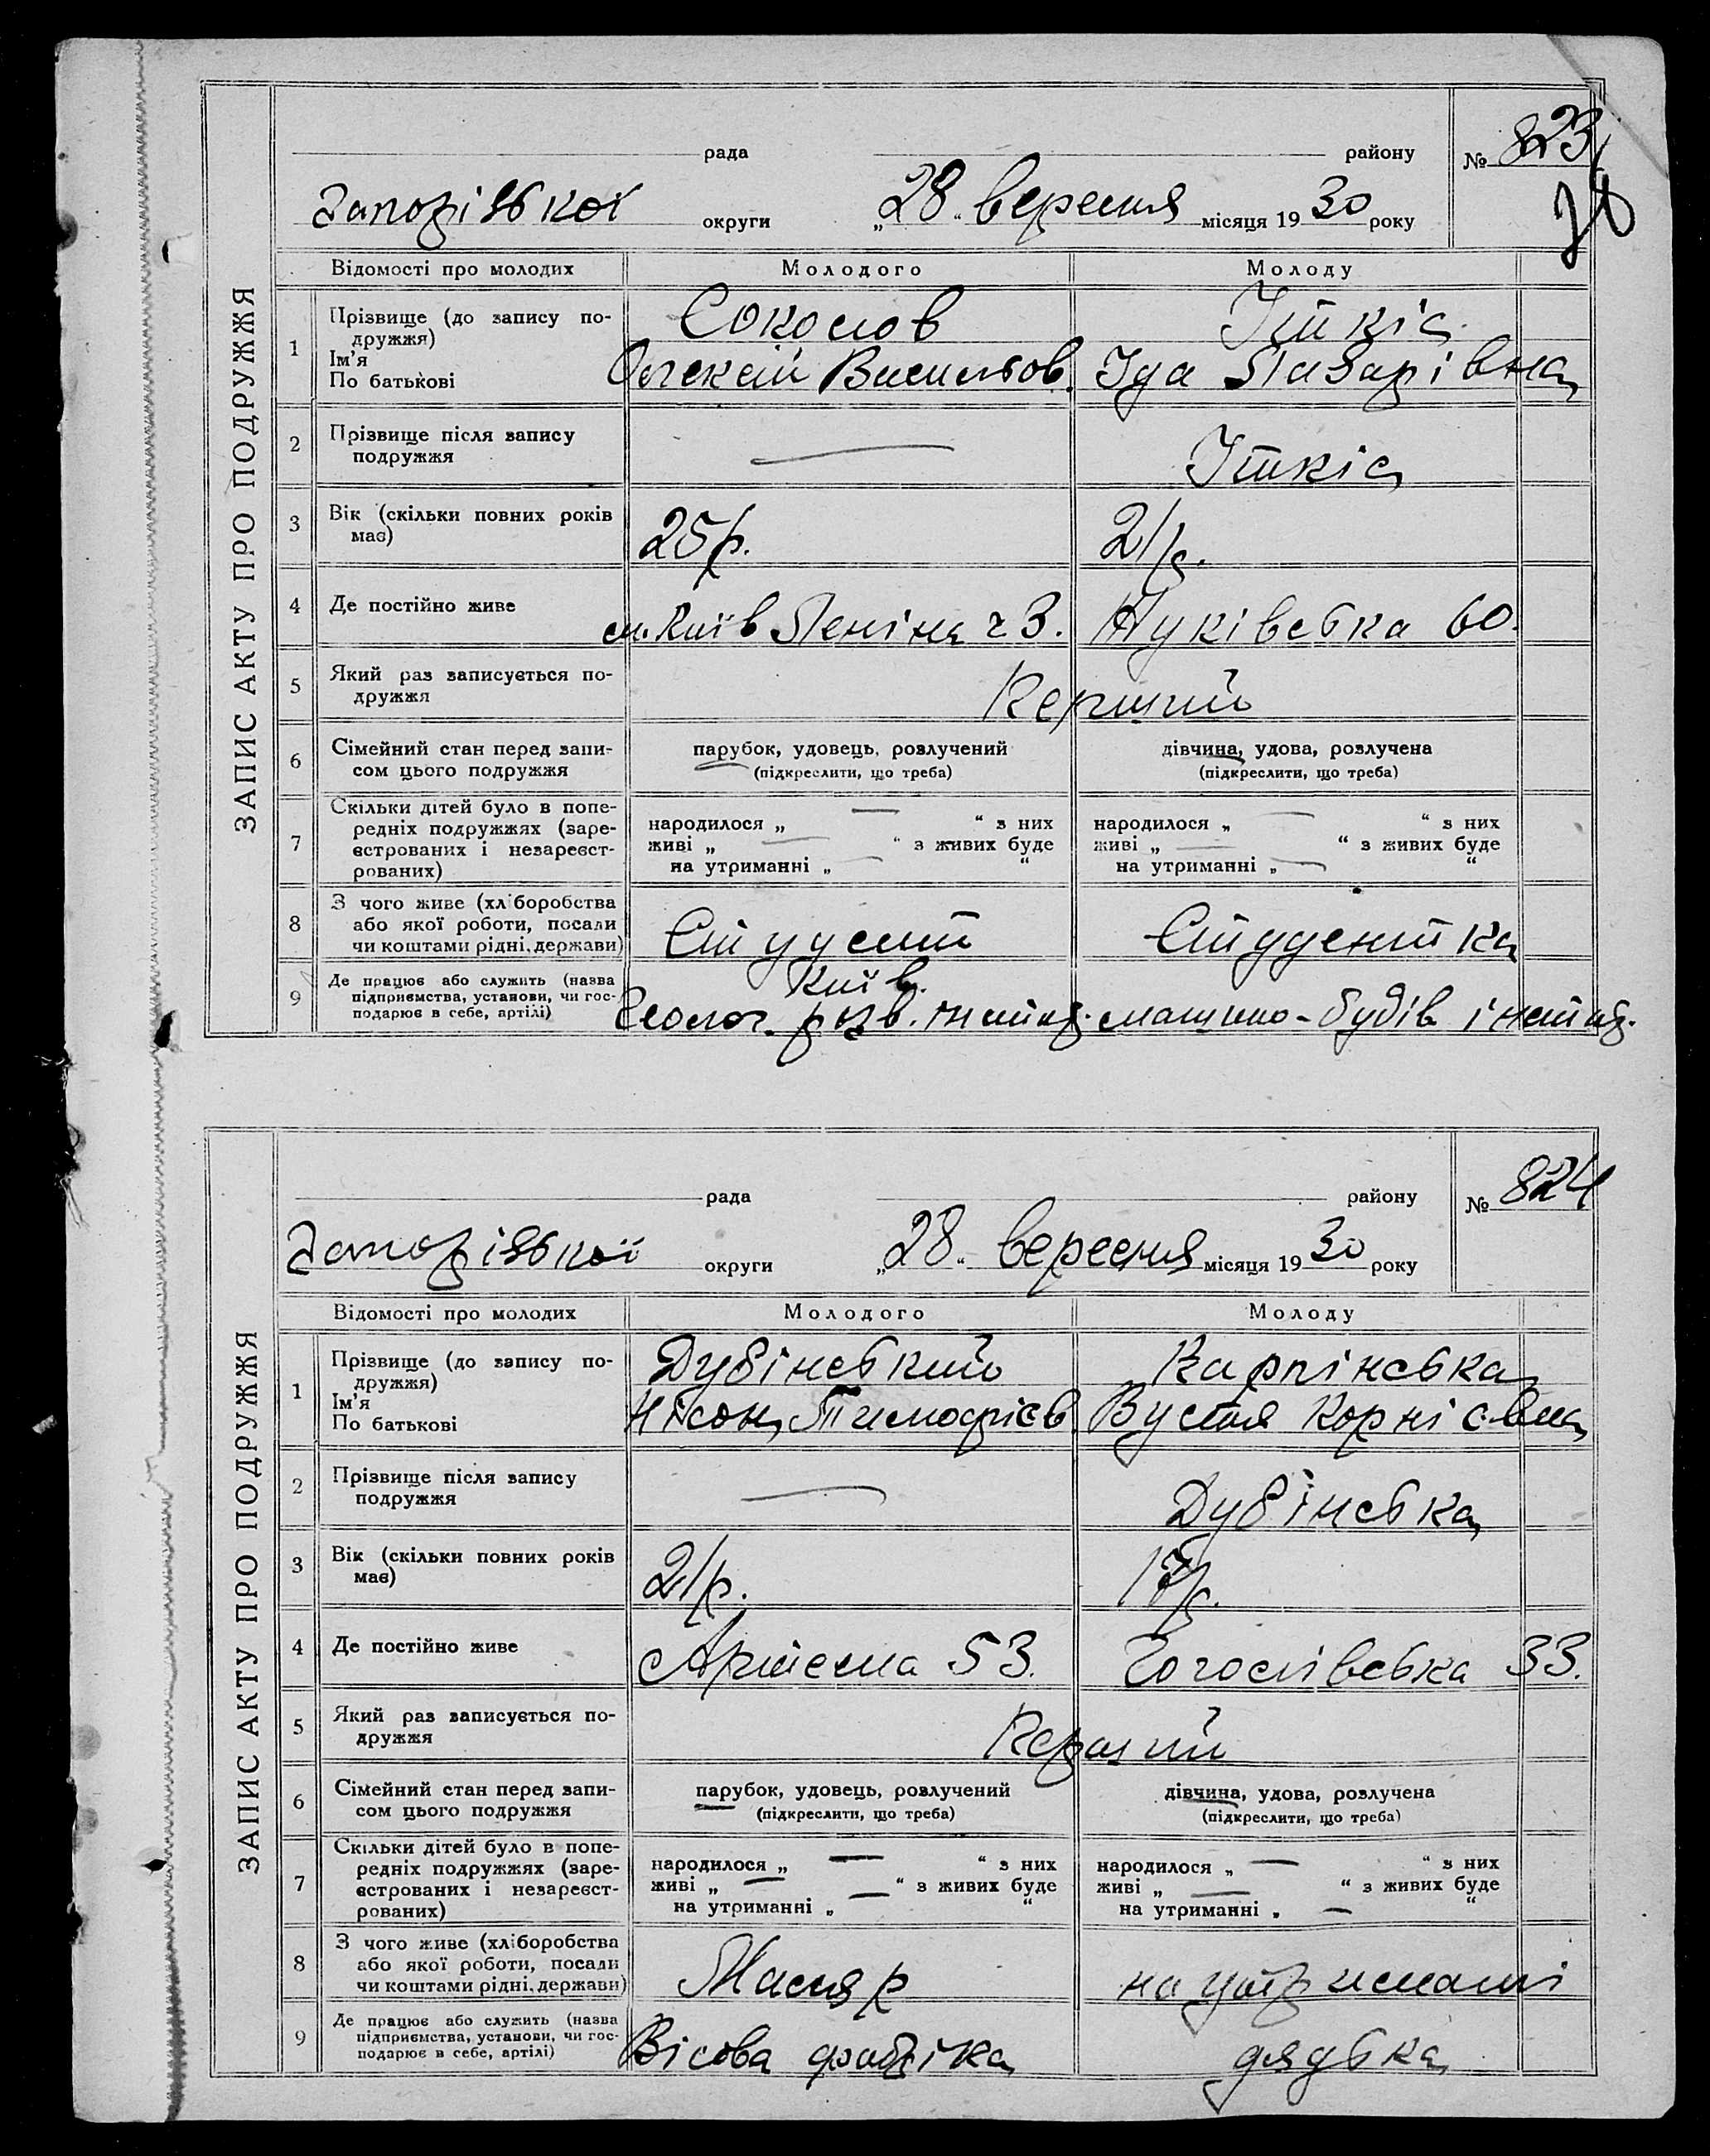 ЗАПИС АКТУ ПРО ПОДРУЖЖЯ
рада району № 823
28
Запорізької округи „28“ вересня місяця 1930 року
Відомості про молодих Молодого Молоду
1 Прізвище (до запису по-
дружжя)
Ім'я
По батькові
Соколов
Олексій Васильов.
Іткіс
Іда Лазарівна
2 Прізвище після запису
подружжя
— Іткіс
3 Вік (скільки повних років
має)
25 р. 21 р.
4 Де постійно живе м. Київ Леніна 23. Жуківська 60.
5 Який раз записується по-
дружжя
Перший
6 Сімейний стан перед запи-
сом цього подружжя
парубок, удовець, розлучений
(підкреслити, що треба)
дівчина, удова, розлучена
(підкреслити, що треба)
7 Скільки дітей було в попе-
редніх подружжях (заре-
єстрованих і незареєст-
рованих)
народилося „ — “ з них
живі „ — “ з живих буде
на утриманні „ — “
народилося „ — “ з них
живі „ — “ з живих буде
на утриманні „ — “
8 З чого живе (хліборобства
або якої роботи, посади
чи коштами рідні, держави)
Студент Студентка
9 Де працює або служить (назва
підприємства, установи, чи гос-
подарює в себе, артілі)
Київ.
Геолог. розв. інститут. машино-будів інститут.
ЗАПИС АКТУ ПРО ПОДРУЖЖЯ
рада району № 824
Запорізької округи „28“ вересня місяця 1930 року
Відомості про молодих Молодого Молоду
1 Прізвище (до запису по-
дружжя)
Ім'я
По батькові
Дубінський
Тимофієв.
Карпінська
Вустя Корніевна
2 Прізвище після запису
подружжя
— Дубінська
3 Вік (скільки повних років
має)
21 р. 17 р.
4 Де постійно живе Артема 53. Гоголівська 33.
5 Який раз записується по-
дружжя
Перший
6 Сімейний стан перед запи-
сом цього подружжя
парубок, удовець, розлучений
(підкреслити, що треба)
дівчина, удова, розлучена
(підкреслити, що треба)
7 Скільки дітей було в попе-
редніх подружжях (заре-
єстрованих і незареєст-
рованих)
народилося „ — “ з них
живі „ — “ з живих буде
на утриманні „ — “
народилося „ — “ з них
живі „ — “ з живих буде
на утриманні „ — “
8 З чого живе (хліборобства
або якої роботи, посади
чи коштами рідні, держави)
Маляр на утриманні
9 Де працює або служить (назва
підприємства, установи, чи гос-
подарює в себе, артілі)
Вісова фабріка дядька